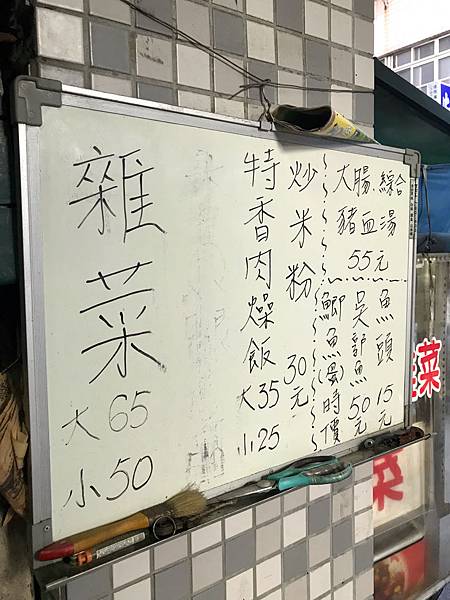 大腸.綜合
豬血湯
55元
魚頭 15元
吳郭魚 50元
鯽魚(蛋)時價
炒米粉 30元
特香肉燥飯 大35
小25
雜菜
大65
小50
菜